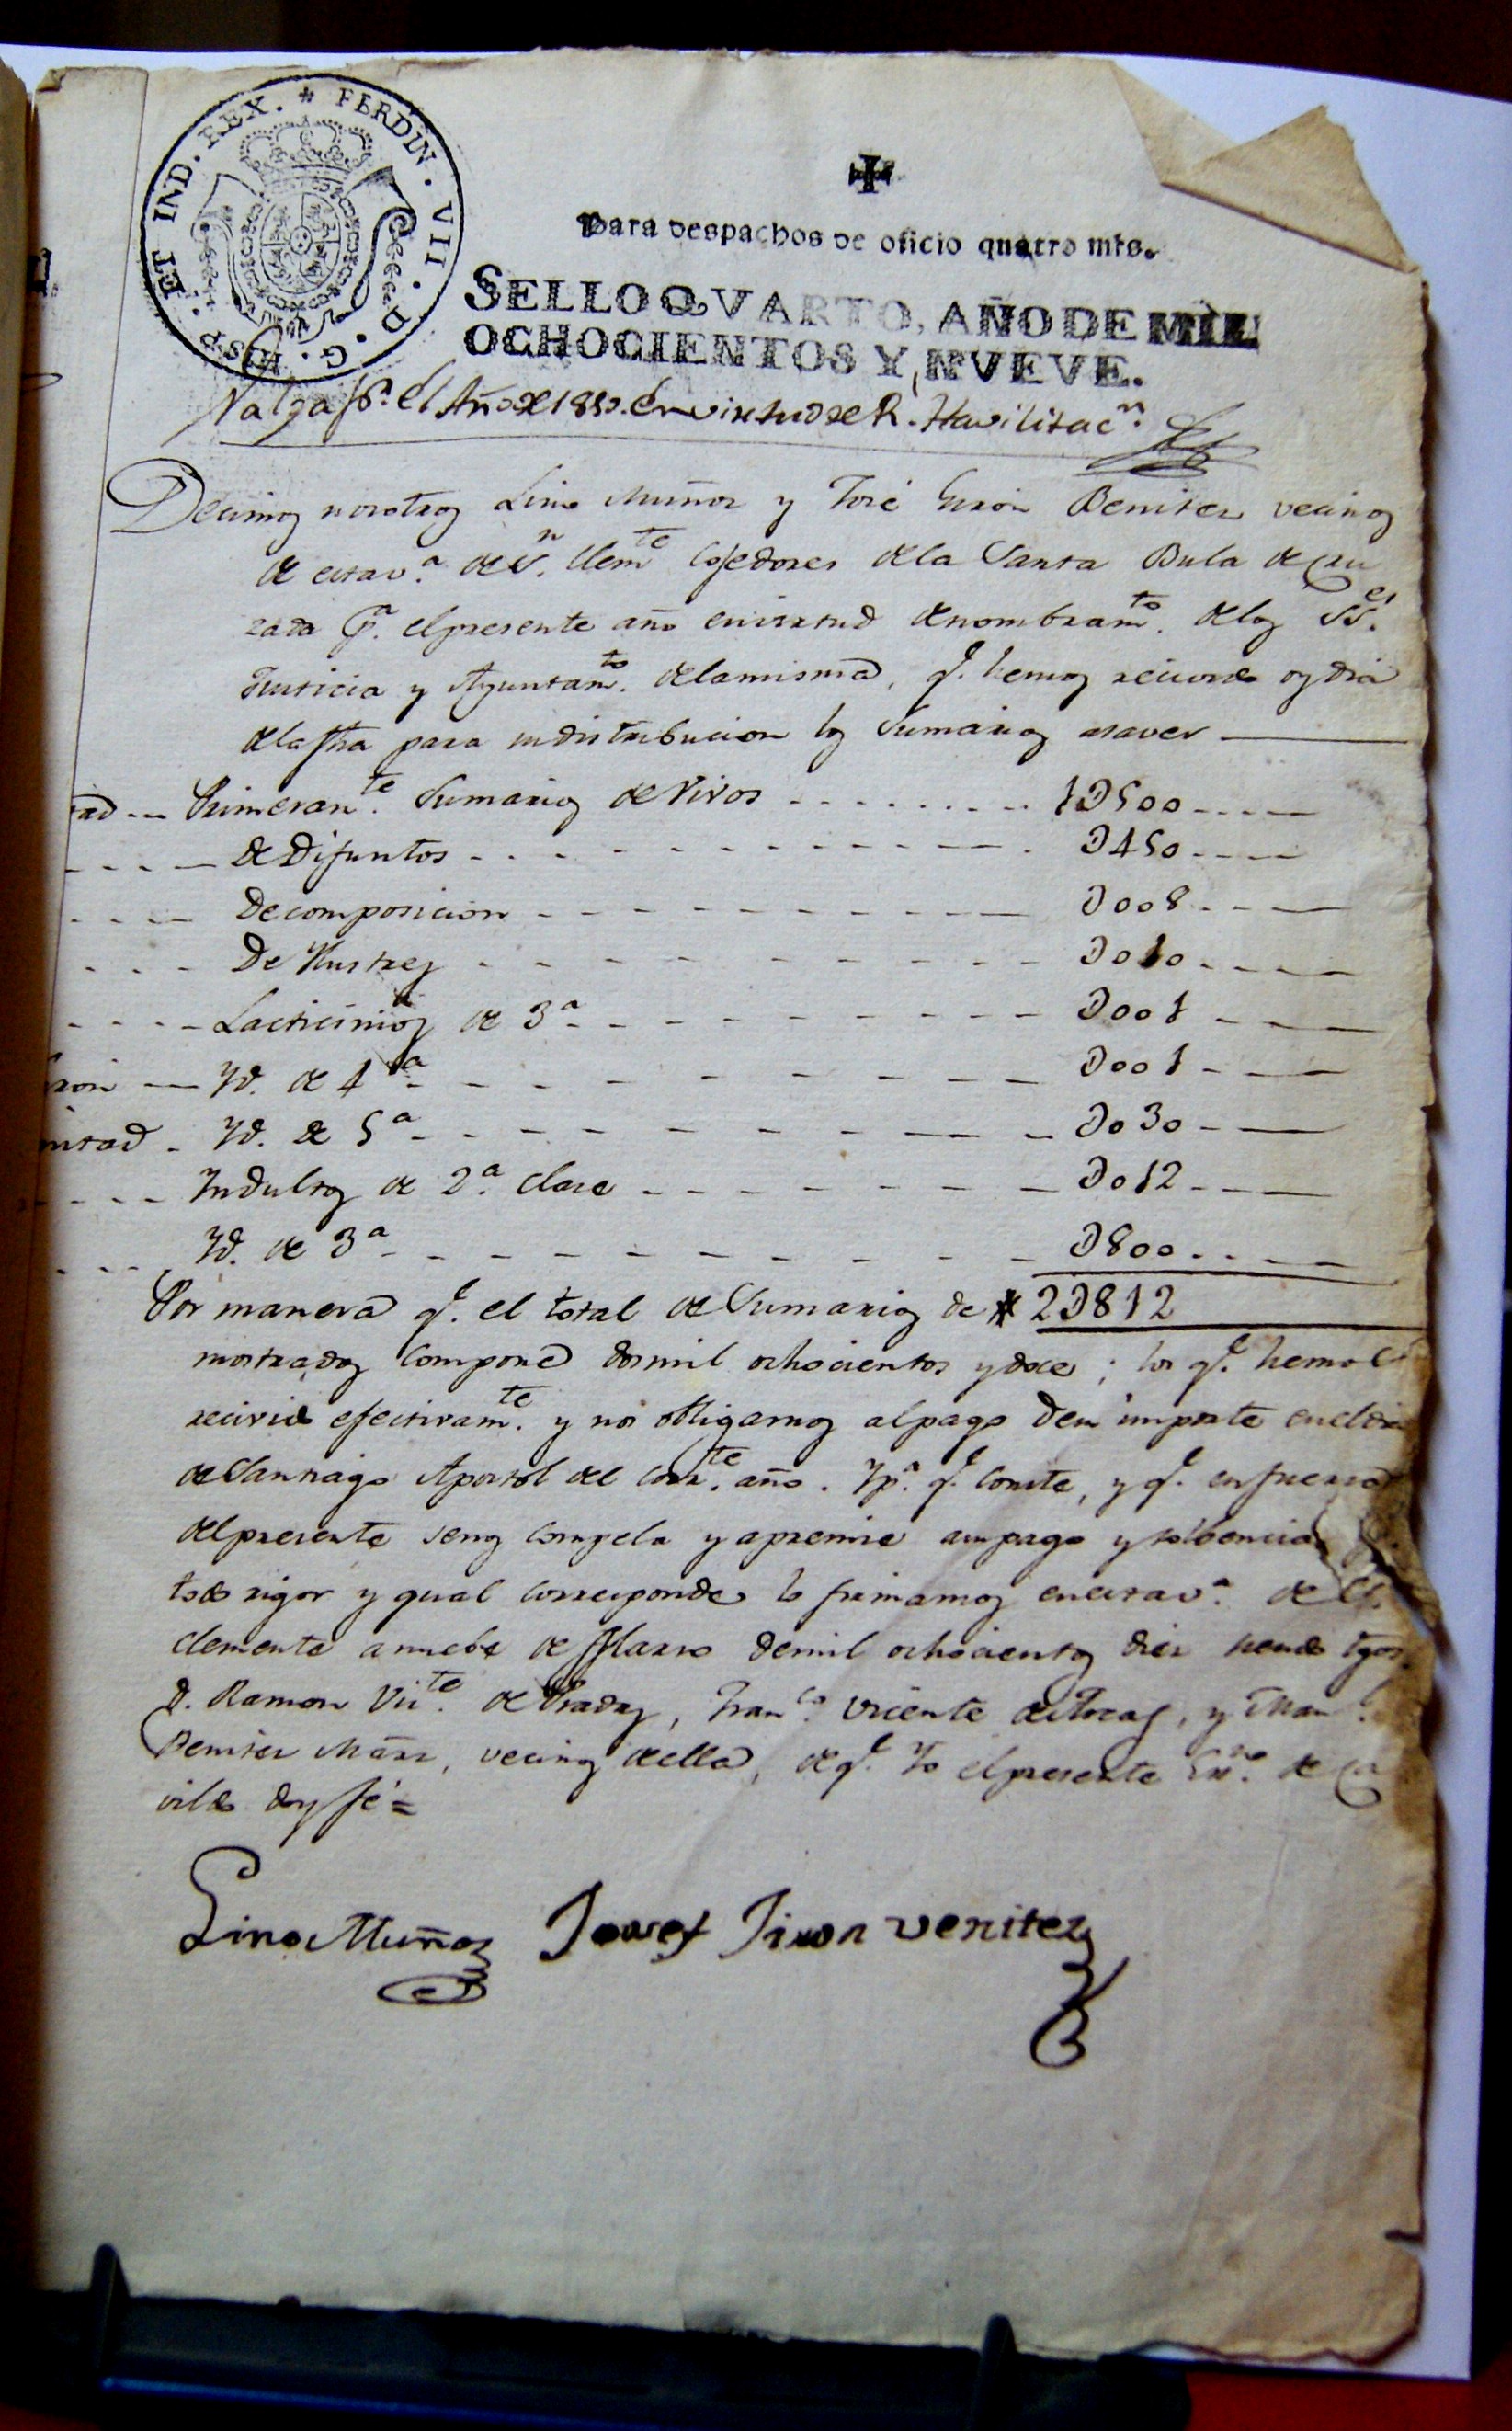 FERDIN. VII. D. G. HISP. ET IND. REX.
Para despachos de oficio quatro mrs.
SELLO QVARTO, AÑO DE MIL
OCHOCIENTOS Y NVEVE.
Valga pa. el Año de 1810. en virtud de R. Havilitacn.
Decimos nosotros Lino Muñoz y José Giron Benitez vecinos
de esta va. de Sn. Clemte Cojedores de la Santa Bula de Cru
zada pa. el presente año en virtud de nombramto. de los SSes.
Justicia y Ayuntamto. de la misma, qe. hemos recivido oy dia
de la fha para su distribucion los Sumarios asaver
Primeramte. Sumarios de Vivos 1D500
de Difuntos D450
De composicion D008
De Ilustres D010
Lacticinios de 3a D001
Yd. de 4a D001
mitad Yd. de 5a D030
Indultos de 2a. clase D012
Yd. de 3a D800
Por manera qe. el total de Sumarios de 2D812
mostrados compone dos mil ochocientos y doce; los qe. hemos
recivido efectivamte. y nos obligamos al pago de su importe en el dia
de Santiago Apostol del corrte. año. Y pa. qe. conste, y qe. en fuerza
del presente se nos compela y apremie a su pago y solvencia
todo rigor y qual corresponde lo firmamos en esta va. de Sn.
Clemente a nuebe de Marzo de mil ochocientos diez siendo tgos.
D. Ramon Vizte. de Pradas, Franco. Vicente de , y Manl.
Benitez , vecinos de ella, de qe. Yo el presente Esno. de Ca
vildo doy fe=
Lino Muñoz Josef Jiron Venitez